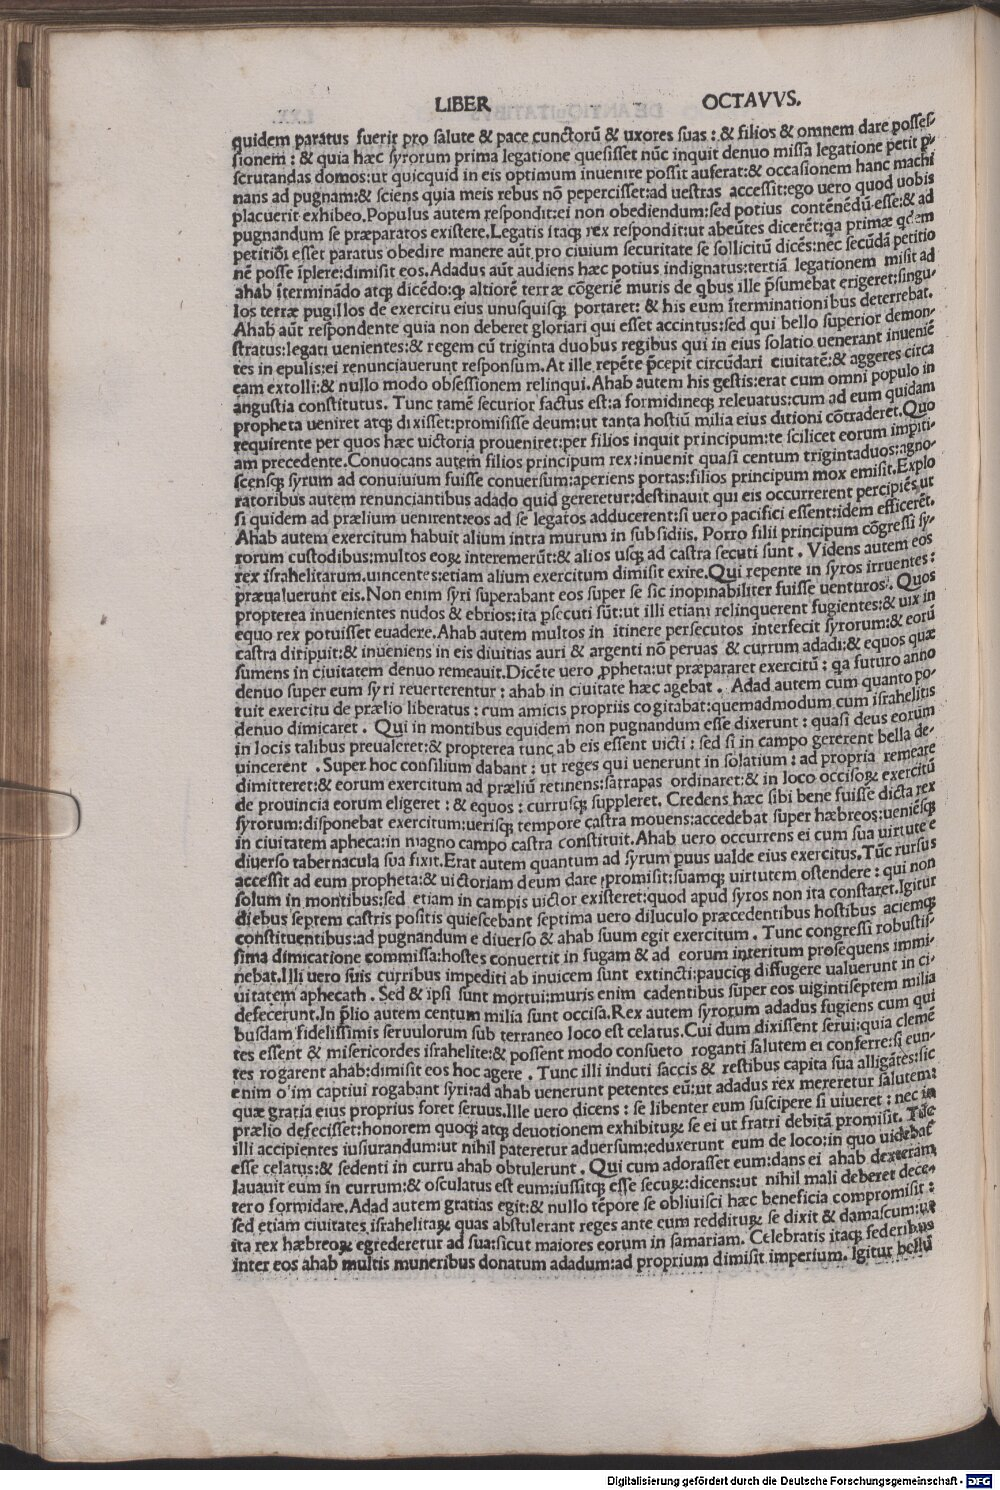 LIBER OCTAVVS.
quidem paratus fuerit pro salute & pace cunctorū & uxores suas: & filios & omnem dare posses-
sionem: & quia hæc syrorum prima legatione quesisset nūc inquit denuo missa legatione petit p̱-
scrutandas domos:ut quicquid in eis optimum inuenire possit auferat:& occasionem hanc machi
nans ad pugnam:& sciens quia meis rebus nō pepercisset:ad uestras accessit:ego uero quod uobis
placuerit exhibeo.Populus autem respondit:ei non obediendum:sed potius contēnēdū esse:& ad
pugnandum se præparatos existere.Legatis itaqꝫ rex respondit:ut abeūtes dicerēt:qa primæ qdem
petitiōi esset paratus obedire manere aūt pro ciuium securitate se sollicitū dicēs:nec secūdā petitio
nē posse īplere:dimisit eos.Adadus aūt audiens hæc potius indignatus:tertiā legationem misit ad
ahab īterminādo atqꝫ dicēdo:ꝙ altiorē terræ cōgeriē muris de qbus ille p̄sumebat erigeret:singu-
los terræ pugillos de exercitu eius unusquisqꝫ portaret: & his eum īterminationibus deterrebat.
Ahab aūt respondente quia non deberet gloriari qui esset accintus:sed qui bello superior demon-
stratus:legati uenientes:& regem cū triginta duobus regibus qui in eius solatio uenerant inueniē
tes in epulis:ei renunciauerunt responsum.At ille repēte p̄cepit circūdari ciuitatē:& aggeres circa
eam extolli:& nullo modo obsessionem relinqui.Ahab autem his gestis:erat cum omni populo in
angustia constitutus. Tunc tamē securior factus est:a formidineqꝫ releuatus:cum ad eum quidam
propheta ueniret atqꝫ dixisset:promisisse deum:ut tanta hostiū milia eius ditioni cōtraderet.Quo
requirente per quos hæc uictoria proueniret:per filios inquit principum:te scilicet eorum impiti-
am precedente.Conuocans autem filios principum rex:inuenit quasi centum trigintaduos:agno-
scensqꝫ syrum ad conuiuium fuisse conuersum:aperiens portas:filios principum mox emisit.Explo
ratoribus autem renunciantibus adado quid gereretur:destinauit qui eis occurrerent percipiēs ut
si quidem ad prælium uenirent:eos ad se legatos adducerent:si uero pacifici essent:idem efficerēt.
Ahab autem exercitum habuit alium intra murum in subsidiis. Porro filii principum cōgressi sy-
rorum custodibus:multos eoꝝ interemerūt:& alios usqꝫ ad castra secuti sunt. Videns autem eos
rex israhelitarum.uincentes:etiam alium exercitum dimisit exire.Qui repente in syros irruentes:
præualuerunt eis.Non enim syri superabant eos super se sic inopinabiliter fuisse uenturos. Quos
propterea inuenientes nudos & ebrios:ita p̱secuti sūt:ut illi etiam relinquerent fugientes:& uix in
equo rex potuisset euadere.Ahab autem multos in itinere persecutos interfecit syrorum:& eorū
castra diripuit:& inueniens in eis diuitias auri & argenti nō peruas & currum adadi:& equos quæ
sumens in ciuitatem denuo remeauit.Dicēte uero ꝓpheta:ut præpararet exercitū: qa futuro anno
denuo super eum syri reuerterentur: ahab in ciuitate hæc agebat. Adad autem cum quanto po-
tuit exercitu de prælio liberatus: cum amicis propriis cogitabat:quemadmodum cum israhelitis
denuo dimicaret. Qui in montibus equidem non pugnandum esse dixerunt: quasi deus eorum
in locis talibus preualeret:& propterea tunc ab eis essent uicti: sed si in campo gererent bella de-
uincerent. Super hoc consilium dabant: ut reges qui uenerunt in solatium: ad propria remeare
dimitteret:& eorum exercitum ad præliū retinens:satrapas ordinaret:& in loco occisoꝝ exercitū
de prouincia eorum eligeret: & equos: currusqꝫ suppleret. Credens hæc sibi bene fuisse dicta rex
syrorum:disponebat exercitum:uerisqꝫ tempore castra mouens:accedebat super hæbreos:ueniēsqꝫ
in ciuitatem apheca:in magno campo castra constituit.Ahab uero occurrens ei cum sua uirtute e
diuerso tabernacula sua fixit.Erat autem quantum ad syrum puus ualde eius exercitus.Tūc rursus
accessit ad eum propheta:& uictoriam deum dare promisit:suamqꝫ uirtutem ostendere: qui non
solum in montibus:sed etiam in campis uictor existeret:quod apud syros non ita constaret.Igitur
diebus septem castris positis quiescebant septima uero diluculo præcedentibus hostibus aciemqꝫ
constituentibus:ad pugnandum e diuerso & ahab suum egit exercitum. Tunc congressi robustis-
sima dimicatione commissa:hostes conuertit in fugam & ad eorum interitum prosequens immi-
nebat.Illi uero suis curribus impediti ab inuicem sunt extincti:pauciqꝫ diffugere ualuerunt in ci-
uitatem aphecath. Sed & ipsi sunt mortui:muris enim cadentibus super eos uigintiseptem milia
defecerunt.In p̄lio autem centum milia sunt occisa.Rex autem syrorum adadus fugiens cum qui
busdam fidelissimis seruulorum sub terraneo loco est celatus.Cui dum dixissent serui:quia clemē
tes essent & misericordes israhelite:& possent modo consueto roganti salutem ei conferre:si eun-
tes rogarent ahab:dimisit eos hoc agere. Tunc illi induti saccis & restibus capita sua alligātes:sic
enim oīm captiui rogabant syri:ad ahab uenerunt petentes eū:ut adadus rex mereretur salutem:
quæ gratia eius proprius foret seruus.Ille uero dicens: se libenter eum suscipere si uiueret: nec in
prælio defecisset:honorem quoqꝫ atqꝫ deuotionem exhibituꝝ se ei ut fratri debitā promisit. Tūc
illi accipientes iusiurandum:ut nihil pateretur aduersum:eduxerunt eum de loco:in quo uidebat̄
esse celatus:& sedenti in curru ahab obtulerunt. Qui cum adorasset eum:dans ei ahab dexteram
lauauit eum in currum:& osculatus est eum:iussitqꝫ esse secuꝝ:dicens:ut nihil mali deberet dece-
tero formidare.Adad autem gratias egit:& nullo tēpore se obliuisci hæc beneficia compromisit:
sed etiam ciuitates israhelitaꝝ quas abstulerant reges ante eum reddituꝝ se dixit & damascum:ut
ita rex hæbreoꝝ egrederetur ad sua:sicut maiores eorum in samariam. Celebratis itaqꝫ federibus
inter eos ahab multis muneribus donatum adadum:ad proprium dimisit imperium. Igitur bellū
Digitalisierung gefördert durch die Deutsche Forschungsgemeinschaft - DFG